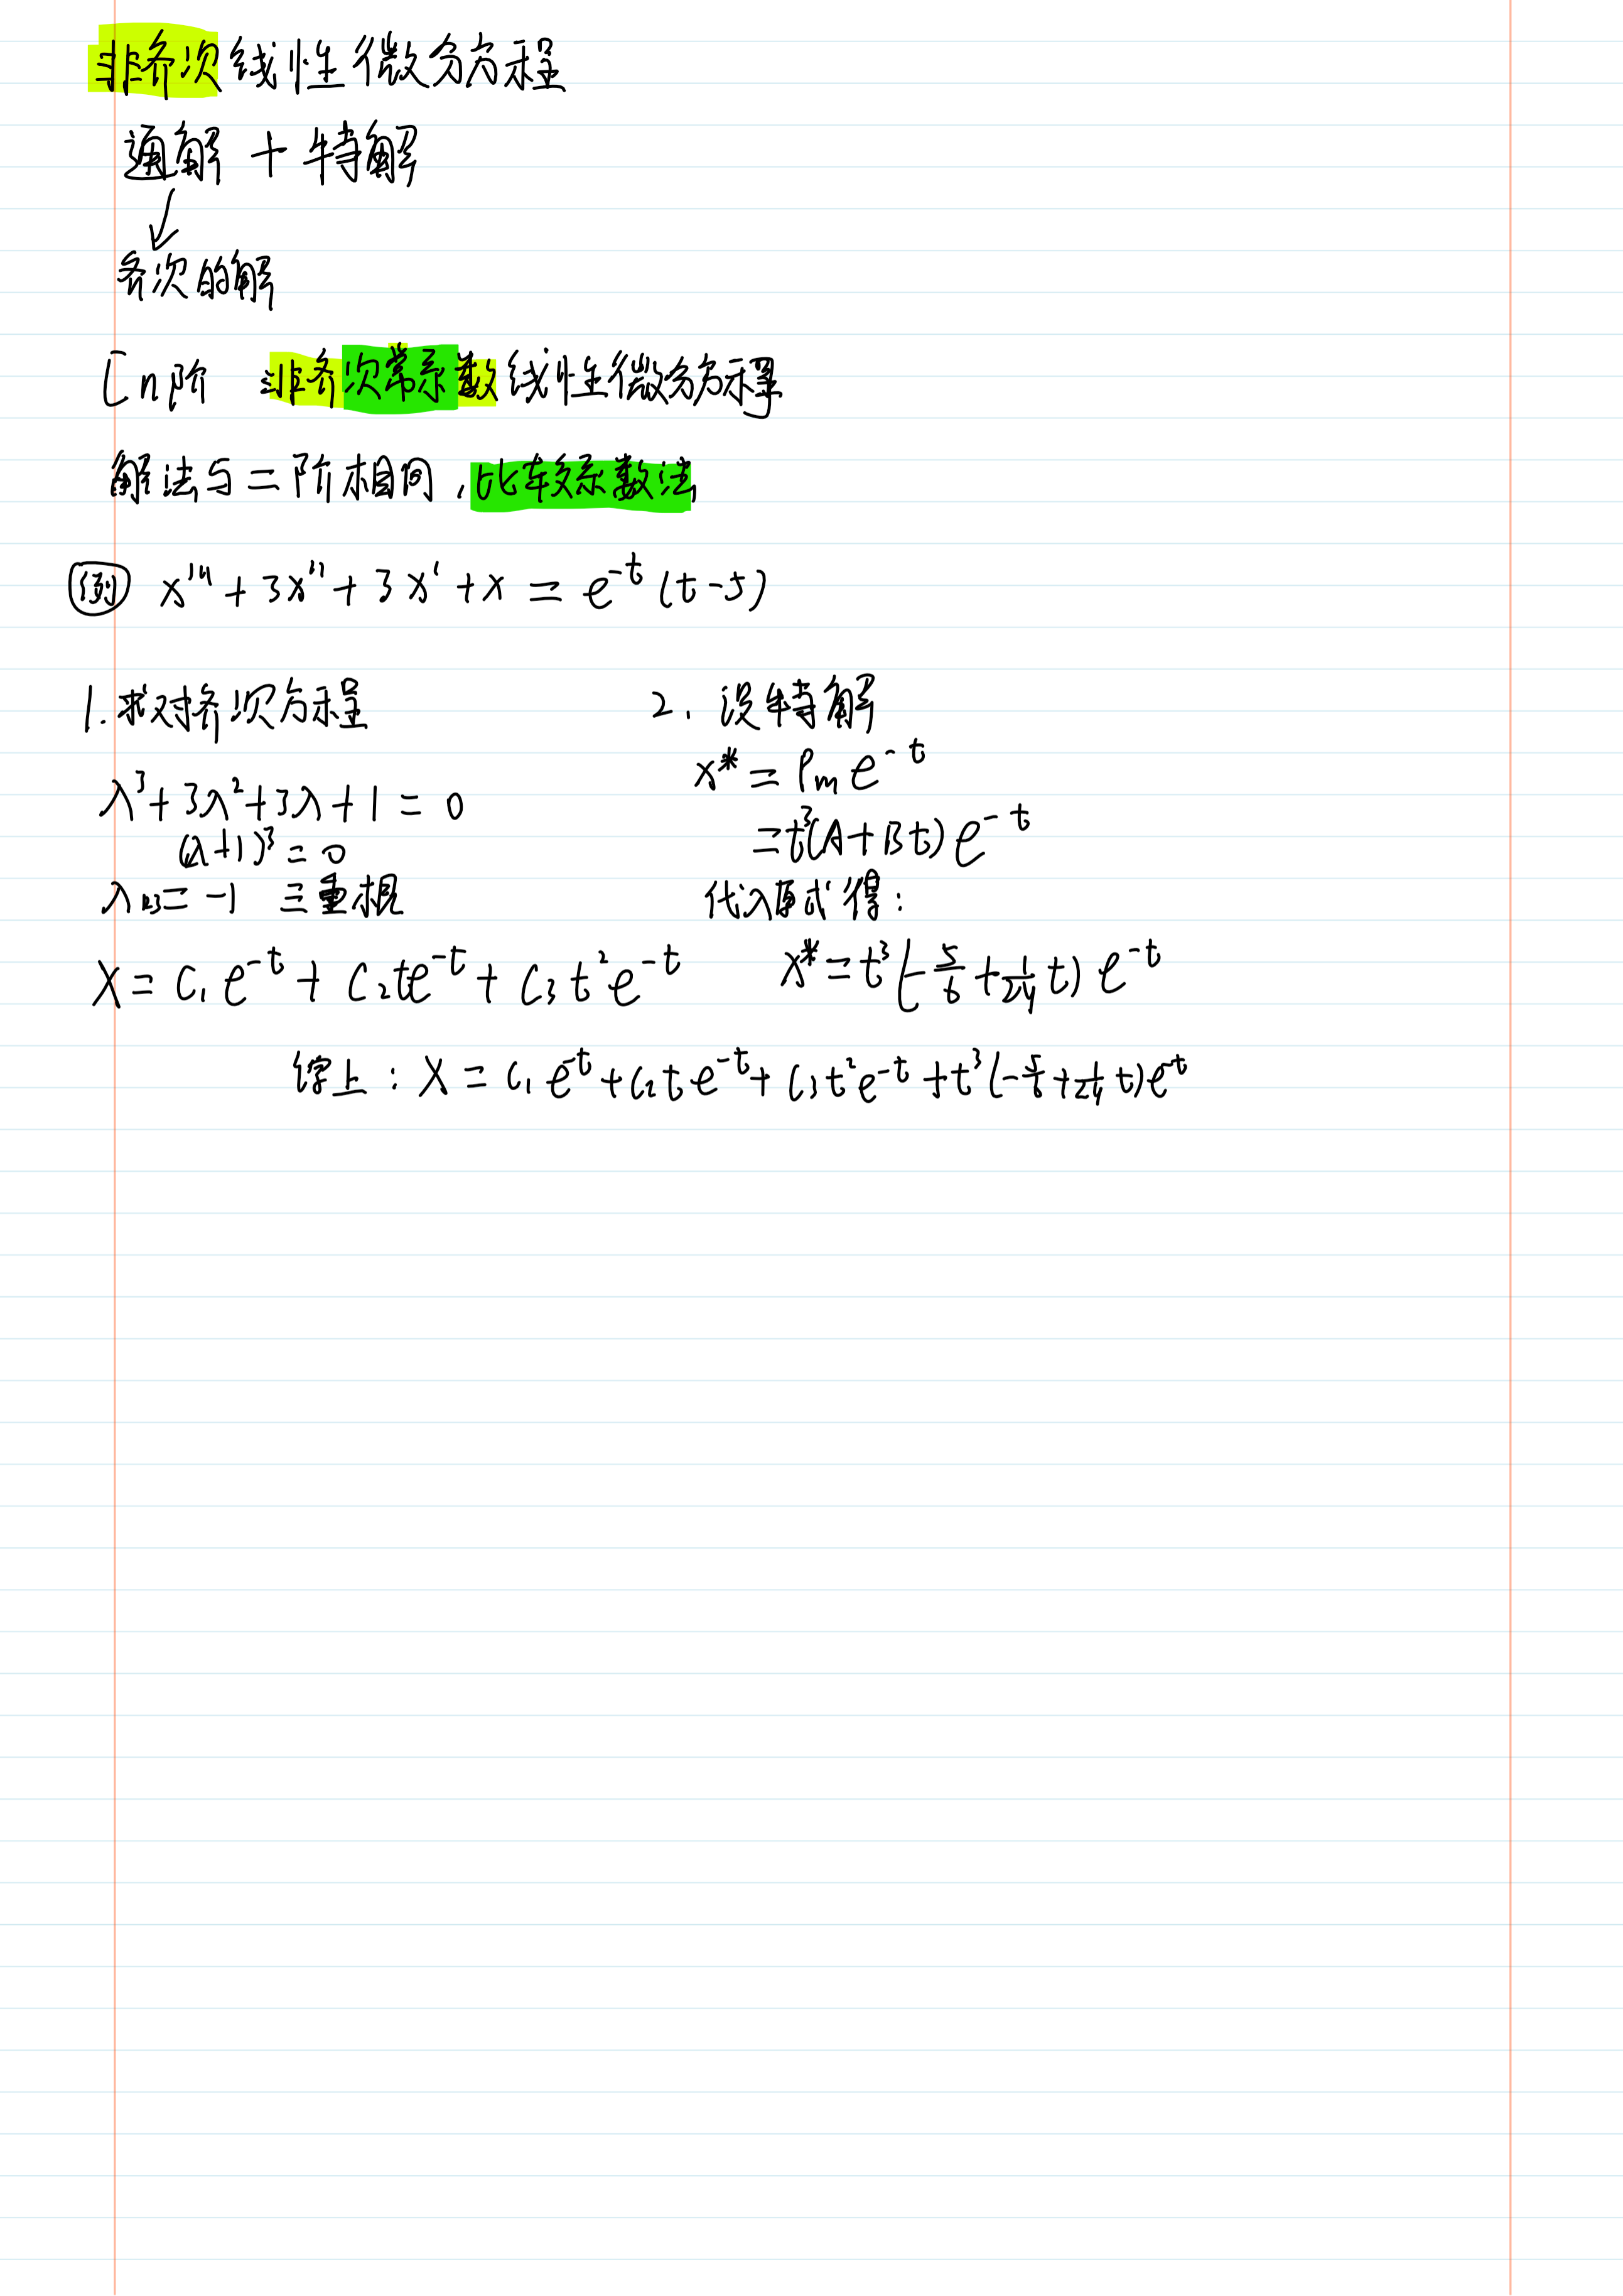 非齐次线性微分方程
通解 + 特解
齐次的解
[n阶 非齐次常系数线性微分方程
解法与二阶相同,比较系数法
例 x''' + 3x'' + 3x' + x = e^{-t} (t-5)
1. 求对齐次方程
λ³+3λ²+3λ+1 = 0
(λ+1)³ = 0
λ₁₂₃ = -1 三重根
X = C₁e^{-t} + C₂te^{-t} + C₃t²e^{-t}
2. 设特解
x* = Pm e^{-t}
= t³(A+Bt) e^{-t}
代入原式得:
x* = t³(-5/6 + 1/24 t) e^{-t}
综上: X = C₁e^{-t} + C₂te^{-t} + C₃t²e^{-t} + t³(-5/6 + 1/24 t)e^{-t}